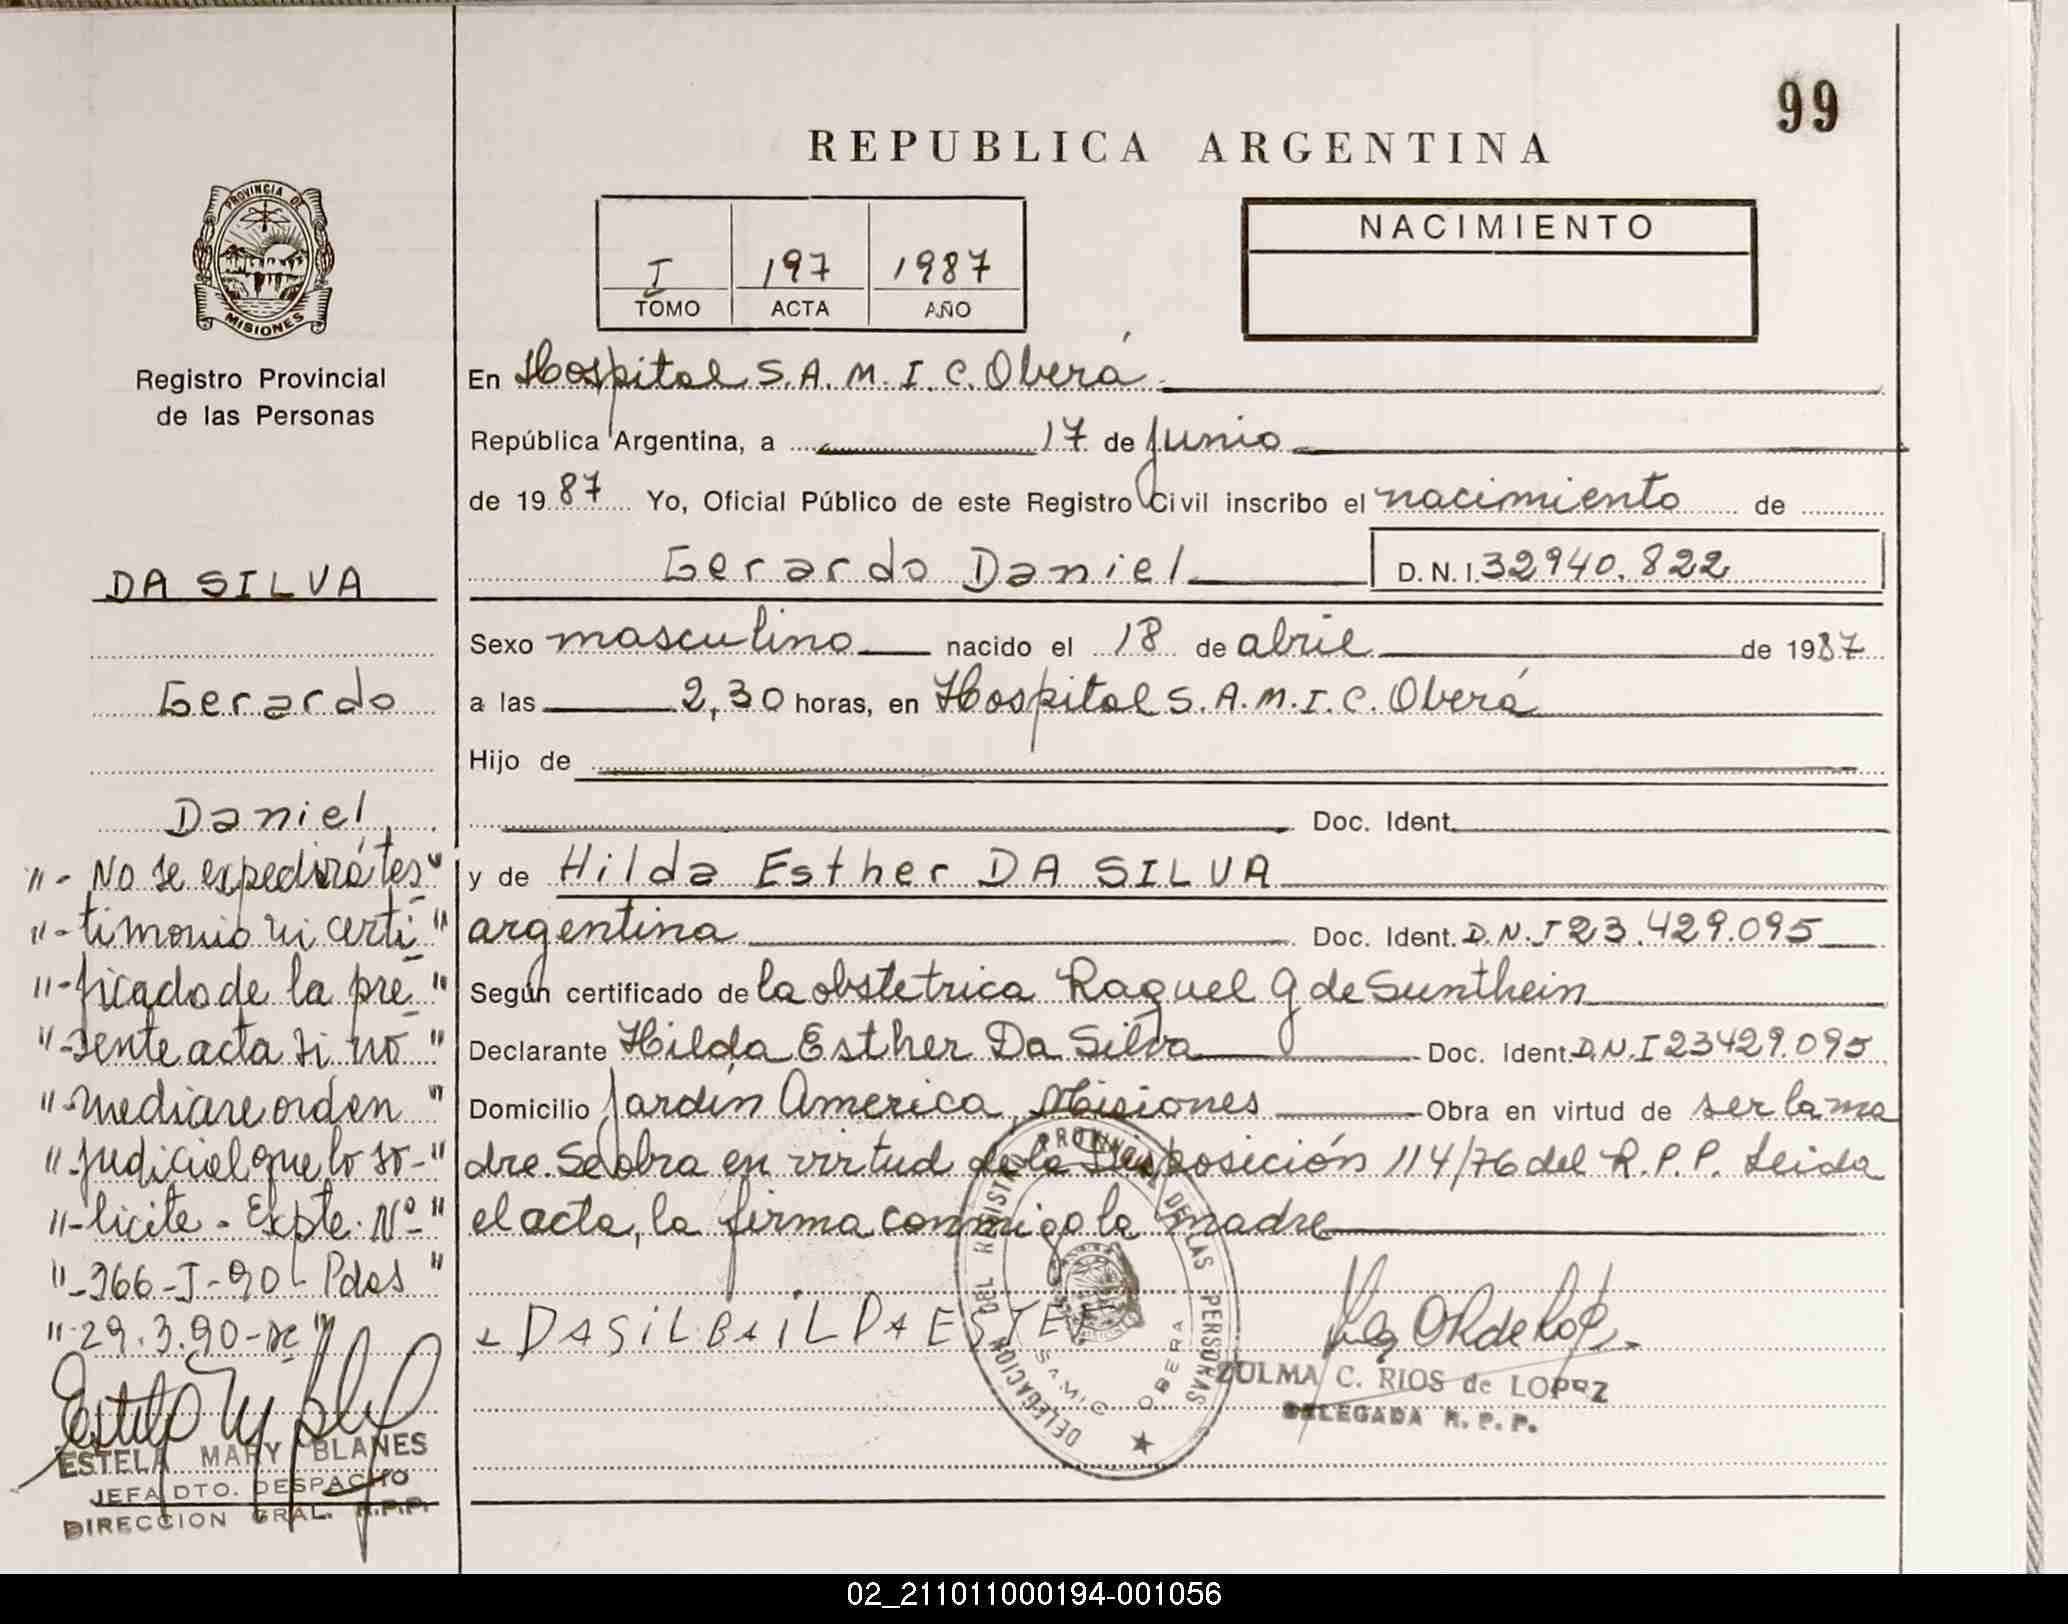 99
REPUBLICA ARGENTINA
PROVINCIA DE
MISIONES
Registro Provincial
de las Personas
I 197 1987
TOMO ACTA AÑO
NACIMIENTO
En Hospital S.A.M.I.C. Oberá
República Argentina, a 17 de Junio
de 1987 Yo, Oficial Público de este Registro Civil inscribo el nacimiento de
Gerardo Daniel D.N.I. 32940.822
Sexo masculino nacido el 18 de abril de 1987
a las 2,30 horas, en Hospital S.A.M.I.C. Oberá
Hijo de
Doc. Ident.
y de Hilda Esther DA SILVA
argentina Doc. Ident. D.N.I 23.429.095
Según certificado de la obstetrica Raquel G de Sunthein
Declarante Hilda Esther Da Silva Doc. Ident. D.N.I 23429.095
Domicilio Jardín America Misiones Obra en virtud de ser la ma
dre. Se obra en virtud de la Disposición 114/76 del R.P.P. Leida
el acta, la firma conmigo la madre
DASiLBAiLDAESTE
ZULMA C. RIOS de LOPEZ
DELEGADA R.P.P.
DELEGACION DEL REGISTRO PROVINCIAL DE LAS PERSONAS
SAMIC OBERA
DA SILVA
Gerardo
Daniel
"- No se expedirá tes"
"- timonio ni certi"
"- ficado de la pre"
"- sente acta si no"
"- mediare orden"
"- judicial que lo so-"
"- licite - Expte. Nº"
"- 366-I-90- Pdas"
"- 29.3.90-
ESTELA MARY BLANES
JEFA DTO. DESPACHO
DIRECCION GRAL. R.P.P.
02_211011000194-001056